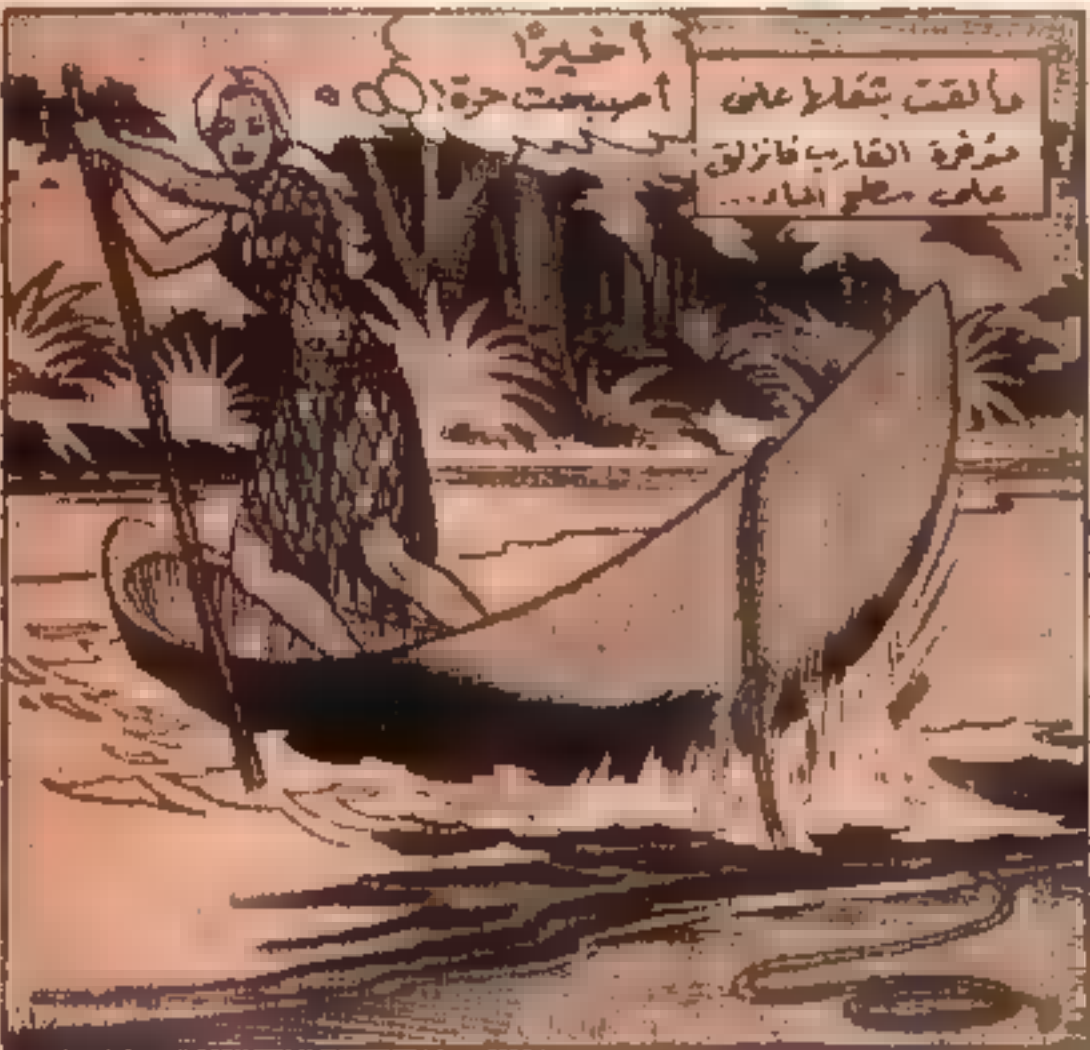 وألقت بثقلها على
مؤخرة القارب فانزلق
على سطح الماء...
أخيرًا
أصبحت حرة!